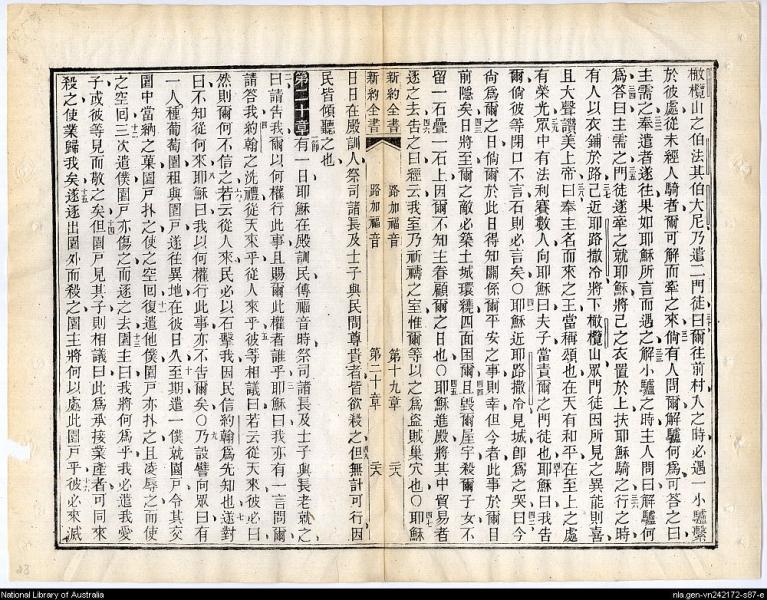 橄欖山之伯法其伯大尼乃遣二門徒曰爾往前村入之時必遇一小驢繫
於彼處從未經人騎者爾可解而牽之來倘有人問爾解驢何為可答之曰
主需之奉遣者遂往果如耶穌所言而遇之解小驢之時主人問曰解驢何
為答曰主需之門徒遂牽之就耶穌將己之衣置於驢上扶耶穌騎之行之時
有人以衣鋪於路己近耶路撒冷將下橄欖山眾門徒因所見之異能則喜
且大聲讚美上帝曰奉主名而來之王當稱頌也在天有和平在至上之處
有榮光眾中有法利賽數人向耶穌曰夫子當責爾之門徒也耶穌曰我告
爾倘彼等閉口不言石則必言矣〇耶穌近耶路撒冷見城即為之哭曰今
尚為爾之日倘爾於此日得知關係爾平安之事則幸但今者此事於爾目
前隱矣日將至爾之敵必築土城環繞四面困爾且毀爾屋宇殺爾子女不
留一石疊一石上因爾不知主眷顧爾之日也〇耶穌進殿將其中貿易者
逐之去告之曰經云我室乃祈禱之室惟爾等以之為盜賊巢穴也〇耶穌
新約全書 路加福音 第十九章 二六
新約全書 路加福音 第二十章 二六
日日在殿訓人祭司諸長及士子與民間尊貴者皆欲殺之但無計可行因
民皆傾聽之也
第二十章 有一日耶穌在殿訓民傳福音時祭司諸長及士子與長老就之
曰請告我爾以何權行此事且賜爾此權者誰乎耶穌曰我亦有一言問爾
請答我約翰之洗禮從天來乎從人來乎彼等相議曰若云從天來彼必曰
然則爾何不信之若云從人來民必以石擊我因民信約翰為先知也遂對
曰不知從何來耶穌曰我以何權行此事亦不告爾矣〇乃設譬向眾曰有
一人種葡萄園租與園戶遂往異地在彼日久至期遣一僕就園戶令其交
園中當納之菓園戶扑之使之空回復遣他僕園戶亦扑之且凌辱之而使
之空回三次遣僕園戶亦傷之而逐之去園主曰我將何為乎我必遣我愛
子或彼等見而敬之矣但園戶見其子則相議曰此為承接業產者可同來
殺之使業歸我矣遂逐出園外而殺之園主將何以處此園戶乎彼必來滅
National Library of Australia
nla.gen-vn242172-s87-e